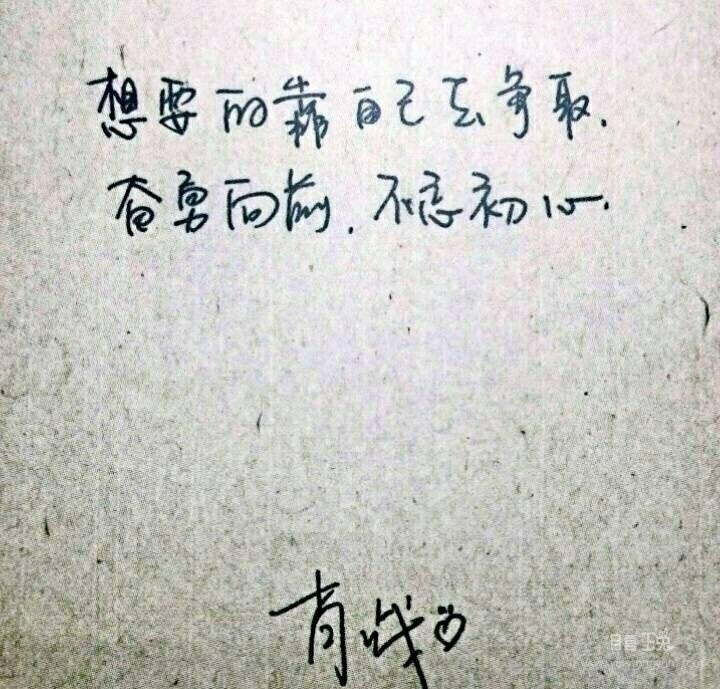 想要的靠自己去争取.
奋勇向前.不忘初心.